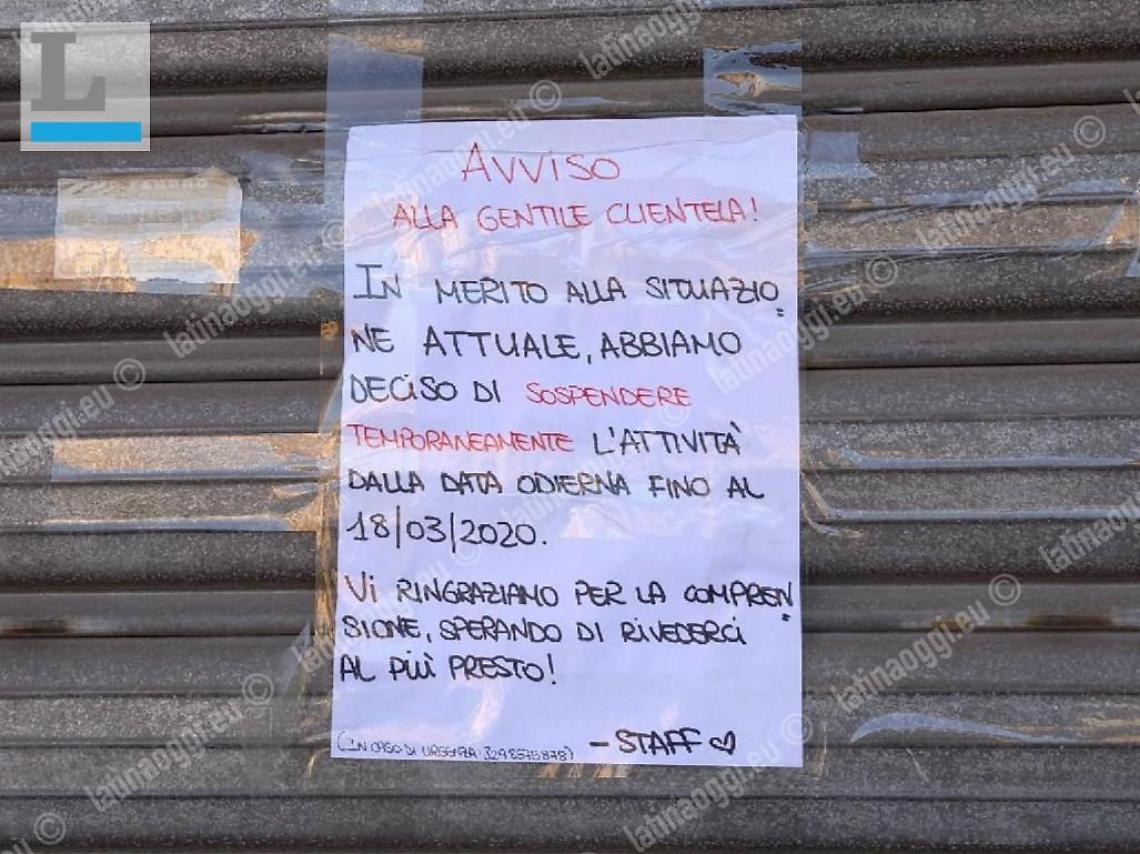 AVVISO
ALLA GENTILE CLIENTELA!
IN MERITO ALLA SITUAZIO=
NE ATTUALE, ABBIAMO
DECISO DI SOSPENDERE
TEMPORANEAMENTE L'ATTIVITÀ
DALLA DATA ODIERNA FINO AL
18/03/2020.
VI RINGRAZIAMO PER LA COMPREN=
SIONE, SPERANDO DI RIVEDERCI
AL PIÙ PRESTO!
- STAFF ♡
(IN CASO DI URGENZA: 3298575878)
L
© latinaoggi.eu